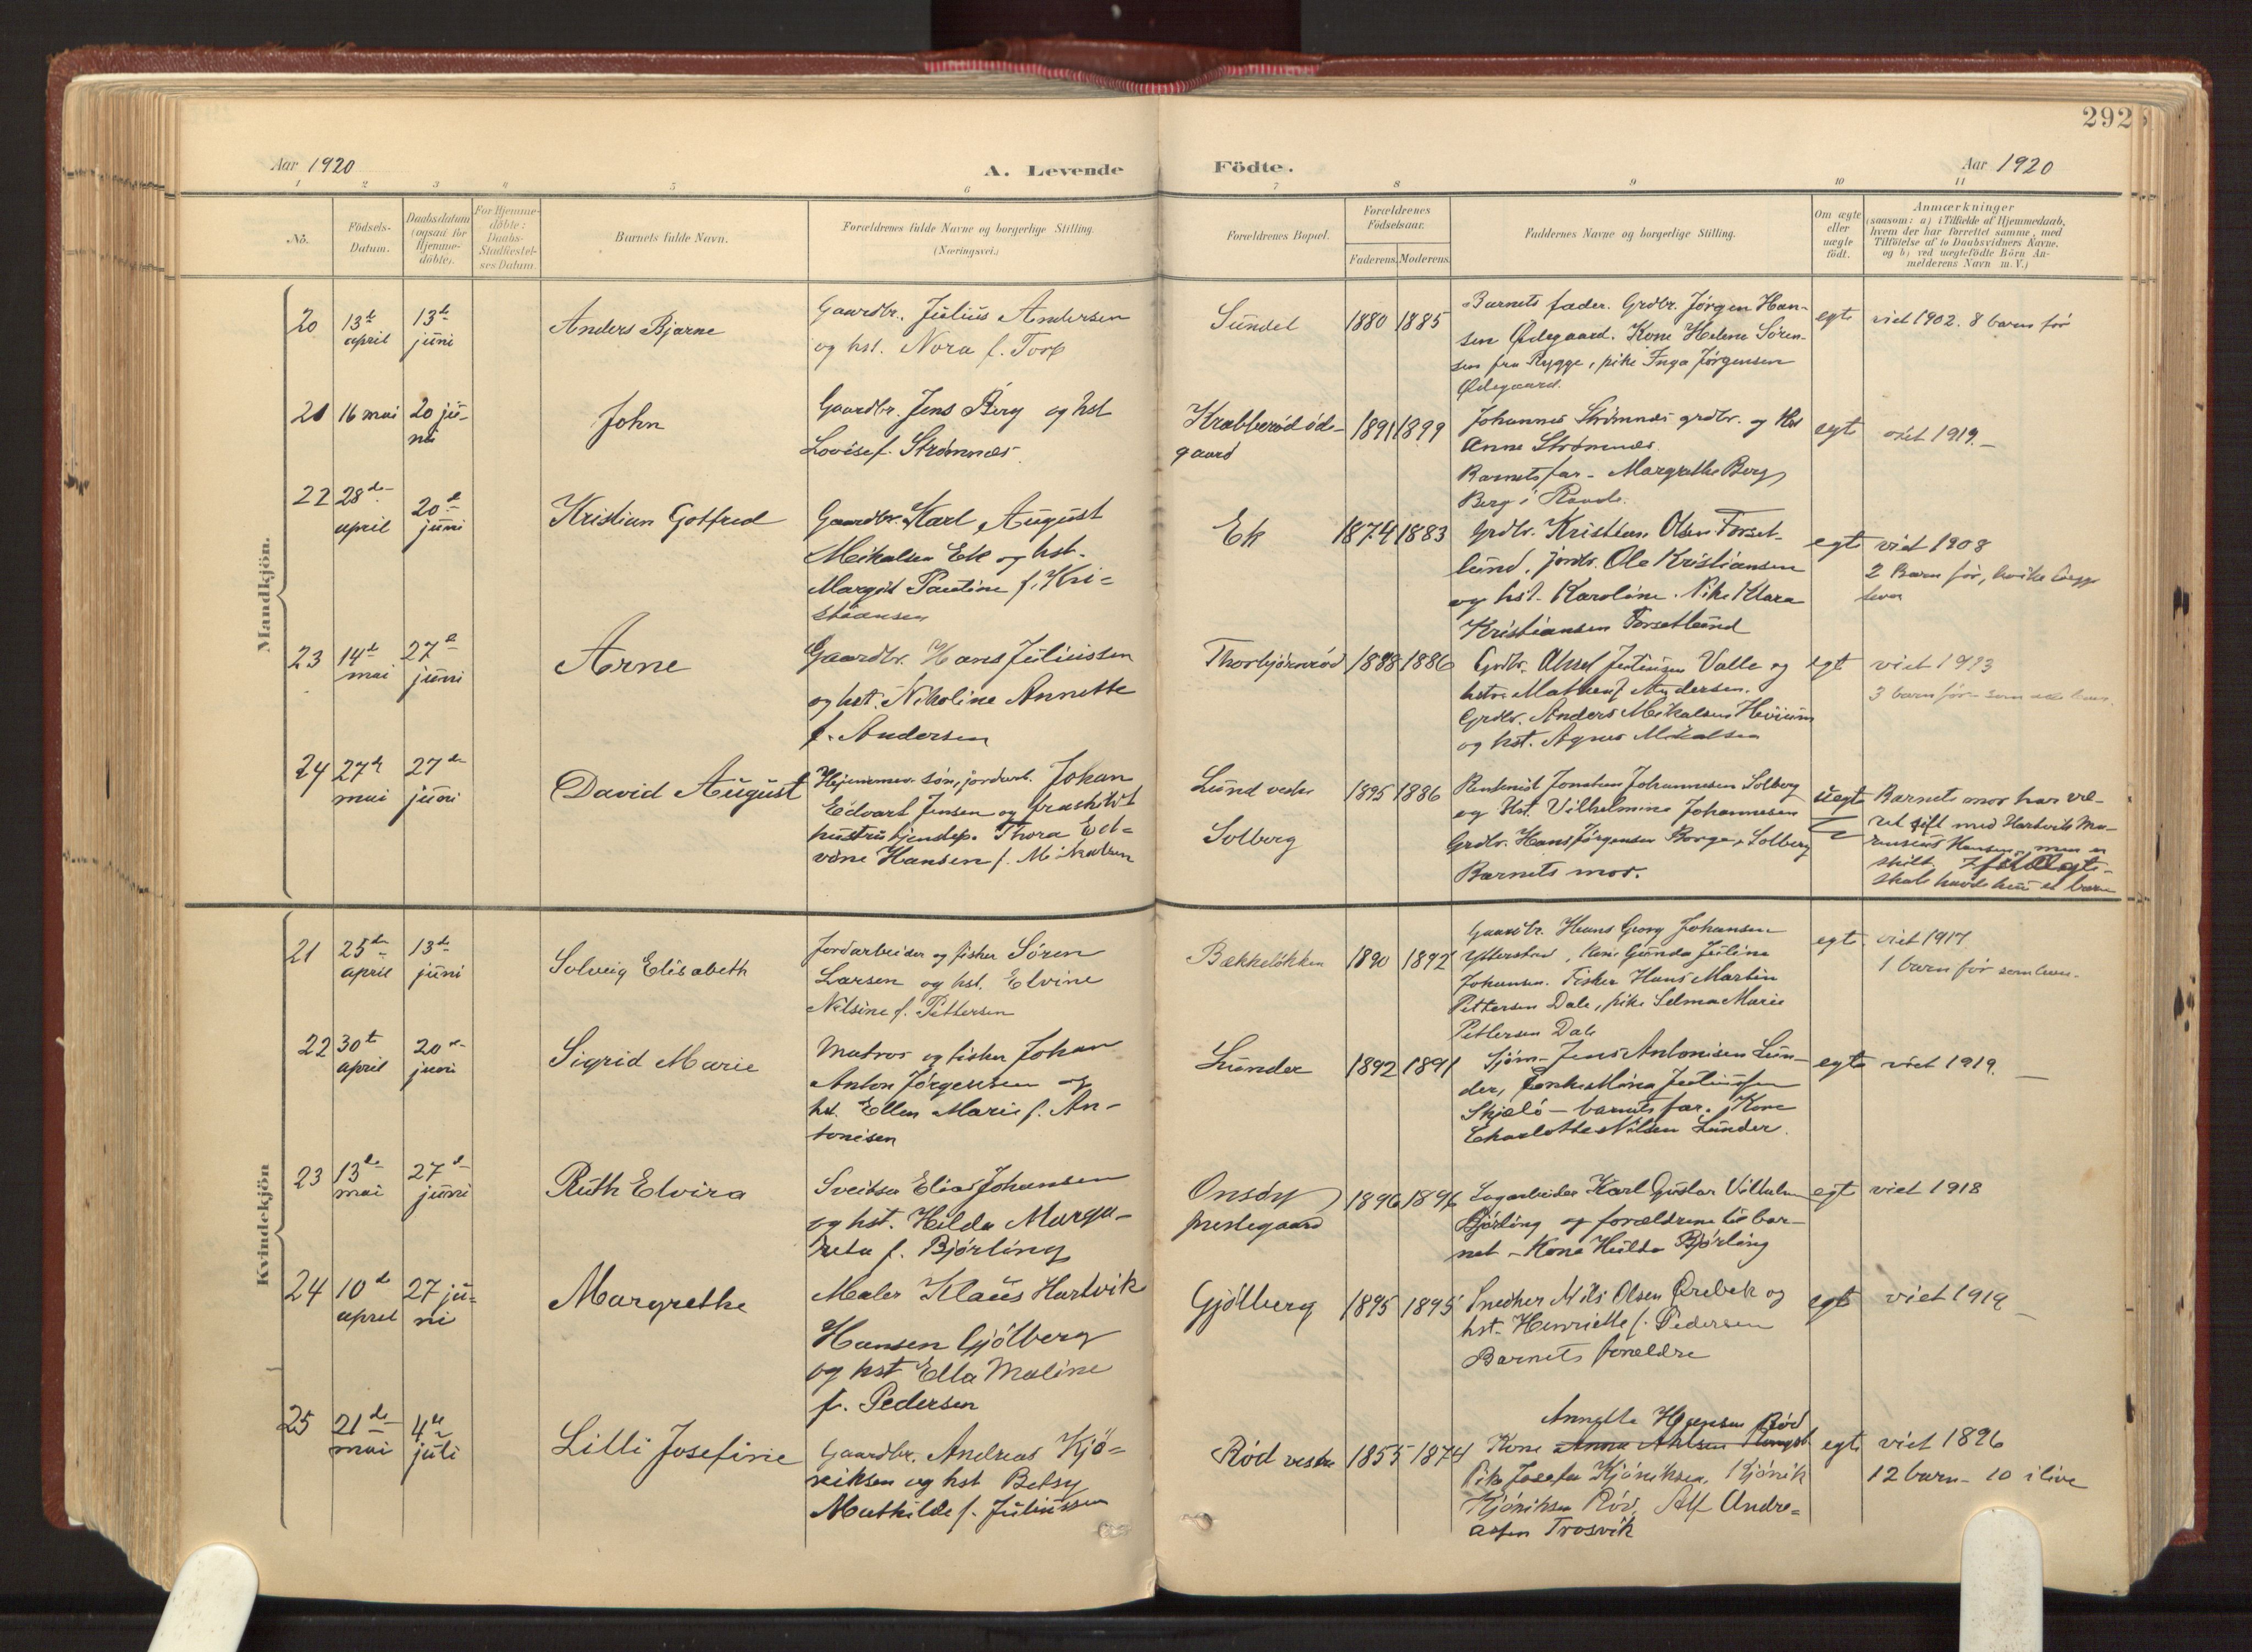 292
Aar 1920
A. Levende
Födte.
Aar 1920
1 2 3 4 5 6 7 8 9 10 11
No.
Födsels-
Datum.
Daabsdatum
(ogsaa for
Hjemme-
döbte).
For Hjemme-
döbte:
Daabs-
Stadfæstel-
ses Datum.
Barnets fulde Navn.
Forældrenes fulde Navne og borgerlige Stilling.
(Næringsvei.)
Forældrenes Bopæl.
Forældrenes
Födselsaar.
Faderens. Moderens.
Faddernes Navne og borgerlige Stilling.
Om ægte
eller
uægte
födt.
Anmærkninger
(saasom: a) i Tilfælde af Hjemmedaab,
hvem der har forrettet samme, med
Tilföielse af to Daabsvidners Navne.
og b) ved uægtefödte Börn An-
melderens Navn m. V.)
Mandkjön.
20
13de
april
13de
juni
Anders Bjarne
Gaardbr. Julius Andersen
og hst. Nora f. Torp
Sundet
1880 1885
Barnets fader. Grdbr. Jörgen Han-
sen Ødegaard. Kone Helene Sören-
sen fra Rygge, pike Inga Jörgensen
Ødegaard.
egte
viet 1902. 8 barn för
21
16 mai
20 ju-
ni
John
Gaardbr. Jens Berg og hst
Lovise f. Strömnæs
Krabberöd öde-
gaard
1891 1899
Johannes Strömnæs grdbr. og Hst
Anne Strömnæs
Barnets far - Margrethe Berg
Berg i Raade.
egte
viet 1919. -
22
28de
april
20de
juni
Kristian Gotfred
Gaardbr. Karl August
Mikalsen Ek og hst.
Margit Pauline f. Kri-
stiansen
Ek
1874 1883
Grdbr. Kristian Olsen Torset-
lund, jordb. Ole Kristiansen
og hst. Karoline. Pike Klara
Kristiansen Torsetlund
egte
viet 1908
2 Barn för, hvilke begge
lever
23
14de
mai
27de
juni
Arne
Gaardbr. Hans Juliussen
og hst. Nikoline Annette
f. Andersen
Thorbjörnröd
1888 1886
Grdbr. Aksel Juliussen Valle og
hstr. Mathea f. Andersen.
Grdbr. Anders Mikalsen
og hst. Agnes Mikalsen
egt
viet 1913
3 barn för som alle lever.
24
27de
mai
27de
juni
David August
Hjemmev. sön, jordarb. Johan
Edvart Jensen og fraskildt
hustru tjenstep. Thora Ed-
vine Hansen f. Mikalsen
Lund vestre
Solberg
1895 1886
Rentenist Jonathan Johannesen Solberg
og Hst. Vilhelmine Johannesen
Grdbr. Hans Jörgensen Borge, Solberg
Barnets mor.
uegte
Barnets mor har væ-
ret gift med Hartvik Ma-
rensius Hansen, men er
skilt. I
skab havde hun et barn
Kvindekjön
21
25de
april
13de
juni
Solveig Elisabeth
Jordarbeider og fisker Sören
Larsen og hst. Elvine
Nilsine f. Pettersen
Bakkelökken
1890 1892
Gaardbr. Hans Georg Johansen
Ytterstad, Kone Gunda Juline
Johansen. Fisker Hans Martin
Pettersen Dale, pike Selma Marie
Pettersen Dale
egte
viet 1917
1 barn för som lever.
22
30te
april
20de
juni
Sigrid Marie
Matros og fisker Johan
Anton Jörgensen og
hst. Ellen Marie f. An-
tonisen
Lunder
1892 1891
Sjöm. Jens Antonisen Lun-
der, Enke Mina Juliussen
Skjælö - barnets far. Kone
Charlotte Nilsen Lunder.
egte
viet 1919. -
23
13de
mai
27de
juni
Ruth Elvira
Sveitser Elias Johansen
og hst. Hilda Marga-
reta f. Björling
Onsöy
prestegaard
1896 1896
Sagarbeider Karl Gustav Vilhelm
Björling og forældrene til bar-
net - Kone Hulda Björling
egte
viet 1918
24
10de
april
27 ju-
ni
Margrethe
Maler Klaus Hartvik
Hansen Gjölberg
og hst Ella Maline
f. Pedersen
Gjölberg
1895 1895
Snedker Nils Olsen Ørebek og
hst. Henriette f. Pedersen
Barnets forældre
egte
viet 1919 -
25
21de
mai
4de
juli
Lilli Josefine
Gaardbr. Andreas Kjö-
niksen og hst Betsy
Mathilde f. Juliussen
Röd vestre
1855 1874
Annette Hansen Röd
Kone Anna
Pike Josefa Kjöniksen, Kjönik
Kjöniksen Röd, Alf Andre-
assen Trosvik
egte
viet 1896
12 barn - 10 i live